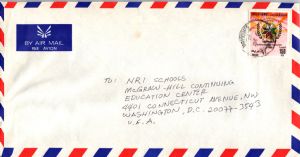 BY AIR MAIL
PAR AVION
TO: NRI SCHOOLS
MCGRAW-HILL CONTINUING
EDUCATION CENTER
4401 CONNECTICUT AVENUE, NW
WASHINGTON, D.C. 20077-3543
U.S.A.